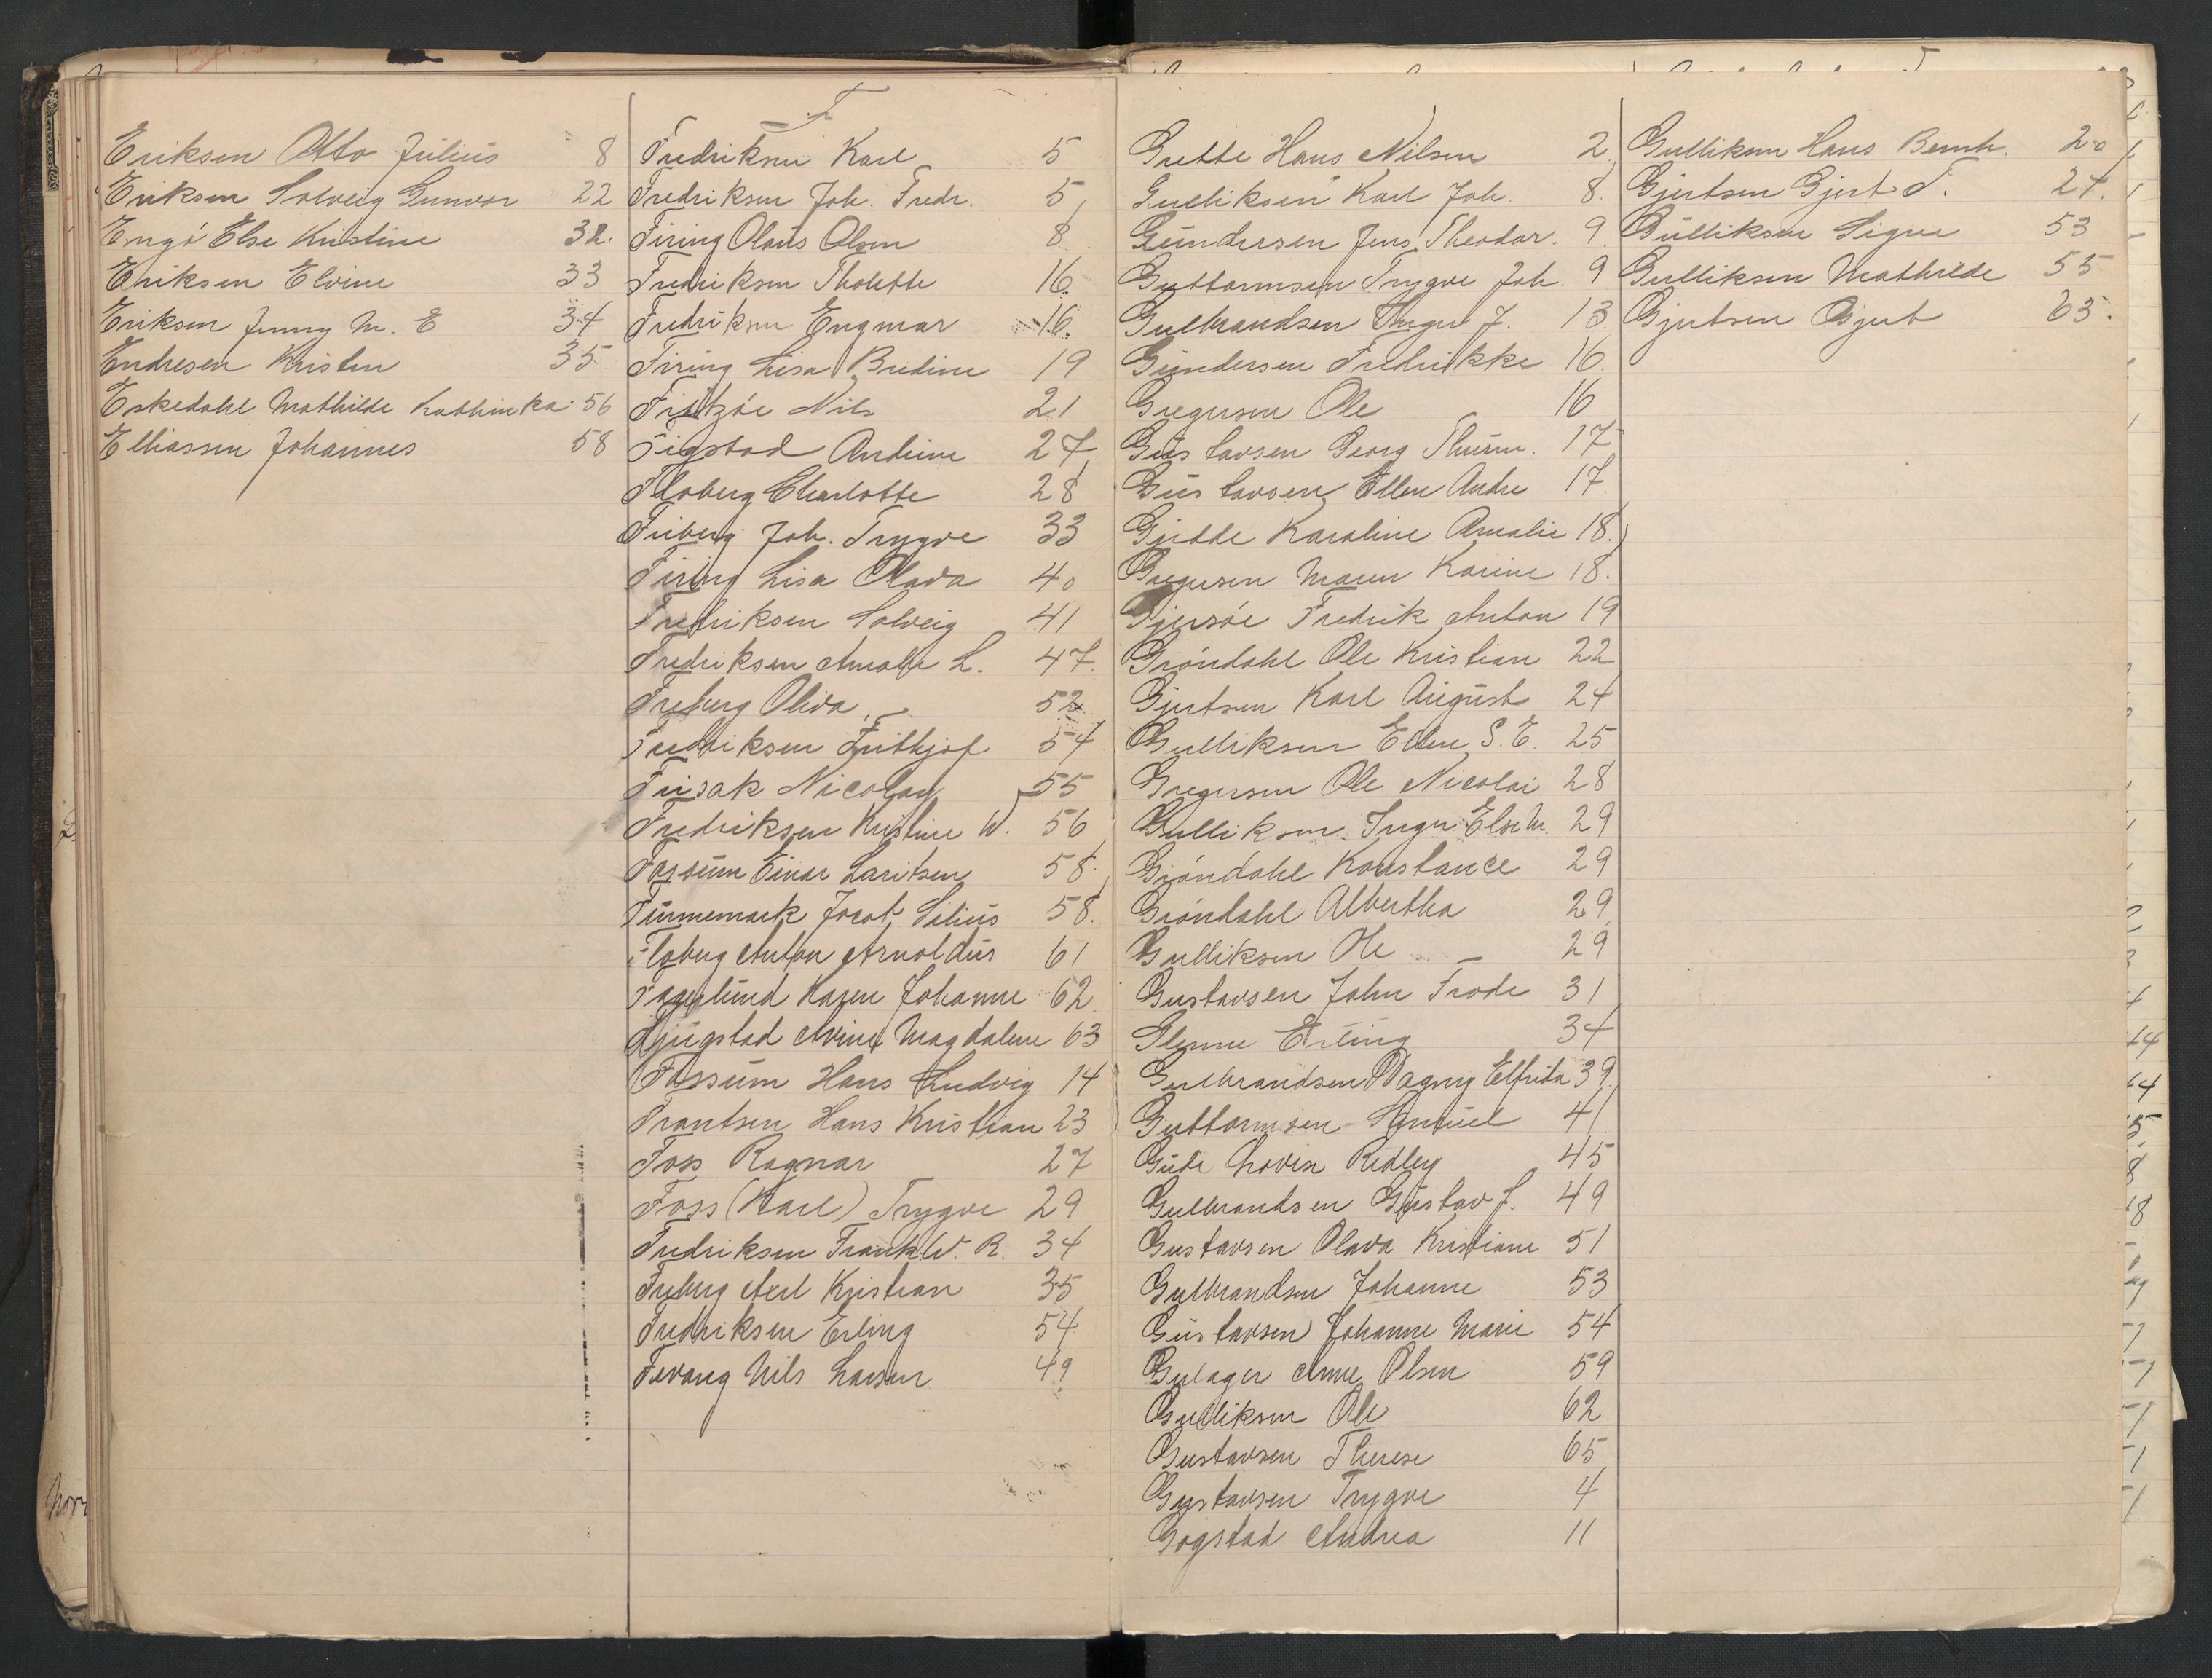 Eriksen Otto Julius 8
Eriksen Solveig Gunvor 22
Engö Else Kristine 32.
Eriksen Elvine 33
Eriksen Jenny M. E 34
Endresen Kristen 35
Eskedahl Mathilde Kathinka 56
Elliassen Johannes 58
F
Fredriksen Karl 5
Fredriksen Joh. Fredr. 5
Firing Olaüs Olsen 8
Fredriksen Tholette 16.
Fredriksen Engmar 16.
Firing Lisa Bredine 19
Nils 21
Figstad Andrine 27
Floberg Charlotte 28
Friberg Joh. Trygve 33
Firing Lisa Olava 40
Fredriksen Solveig 41
Fredriksen Amalie L. 47.
Freberg Oliva 52
Fredriksen Frithjof 54
Frisak Nicolay 55
Fredriksen Kristine W. 56
Fossüm Einar Laritsen 58.
Jacob Silius 58.
Floberg Anton Arnoldüs 61
Fagerlünd Karen Johanne 62.
Magdalene 63
Fossüm Hans Ludvig 14
Frantsen Hans Kristian 23
Foss Ragnar 27
Foss (Karl) Trygve 29
Fredriksen Frank W. R. 34
Freberg Axel Kristian 35
Fredriksen Erling 54
Fevang Nils Larsen 49
Hans Nilsen 2
Gulliksen Karl Joh. 8.
Gündersen Jens Theodor. 9
Guttormsen Trygve Joh. 9
Gulbrandsen Inger J. 13
Gündersen Fredrikke 16.
Gregersen Ole 16
Güstavsen Georg Thurm. 17
Güstavsen Ellen Andre 17
Karoline Amalie 18.
Gregersen Maren Karine 18.
Gjersöe Fredrik Anton 19
Gröndahl Ole Kristian 22
Gjertsen Karl Aügüst 24
Gulliksen Ellen S. E. 25
Gregersen Ole Nicolai 28
Gulliksen Inger Else M. 29
Gröndahl Konstance 29
Gröndahl Albertha 29
Gulliksen Ole 29
Gustavsen John Frode 31
Glenne Erling 34
Gulbrandsen Dagny Elfrida 39
Guttormsen Samüel 41
Güde Lovise Redley 45
Gulbrandsen Güstav J. 49
Gustavsen Olava Kristiane 51
Gulbrandsen Johanne 53
Güstavsen Johanne Marie 54
Gulager Anne Olsen 59
Gulliksen Ole 62
Gustavsen Therese 65
Gustavsen Trygve 4
Gogstad Andrea 11
Gulliksen Hans Bernh. 20
Gjertsen Gjert F. 24.
Gülliksen Signe 53
Gulliksen Mathilde 55
Gjertsen Gjert 63.